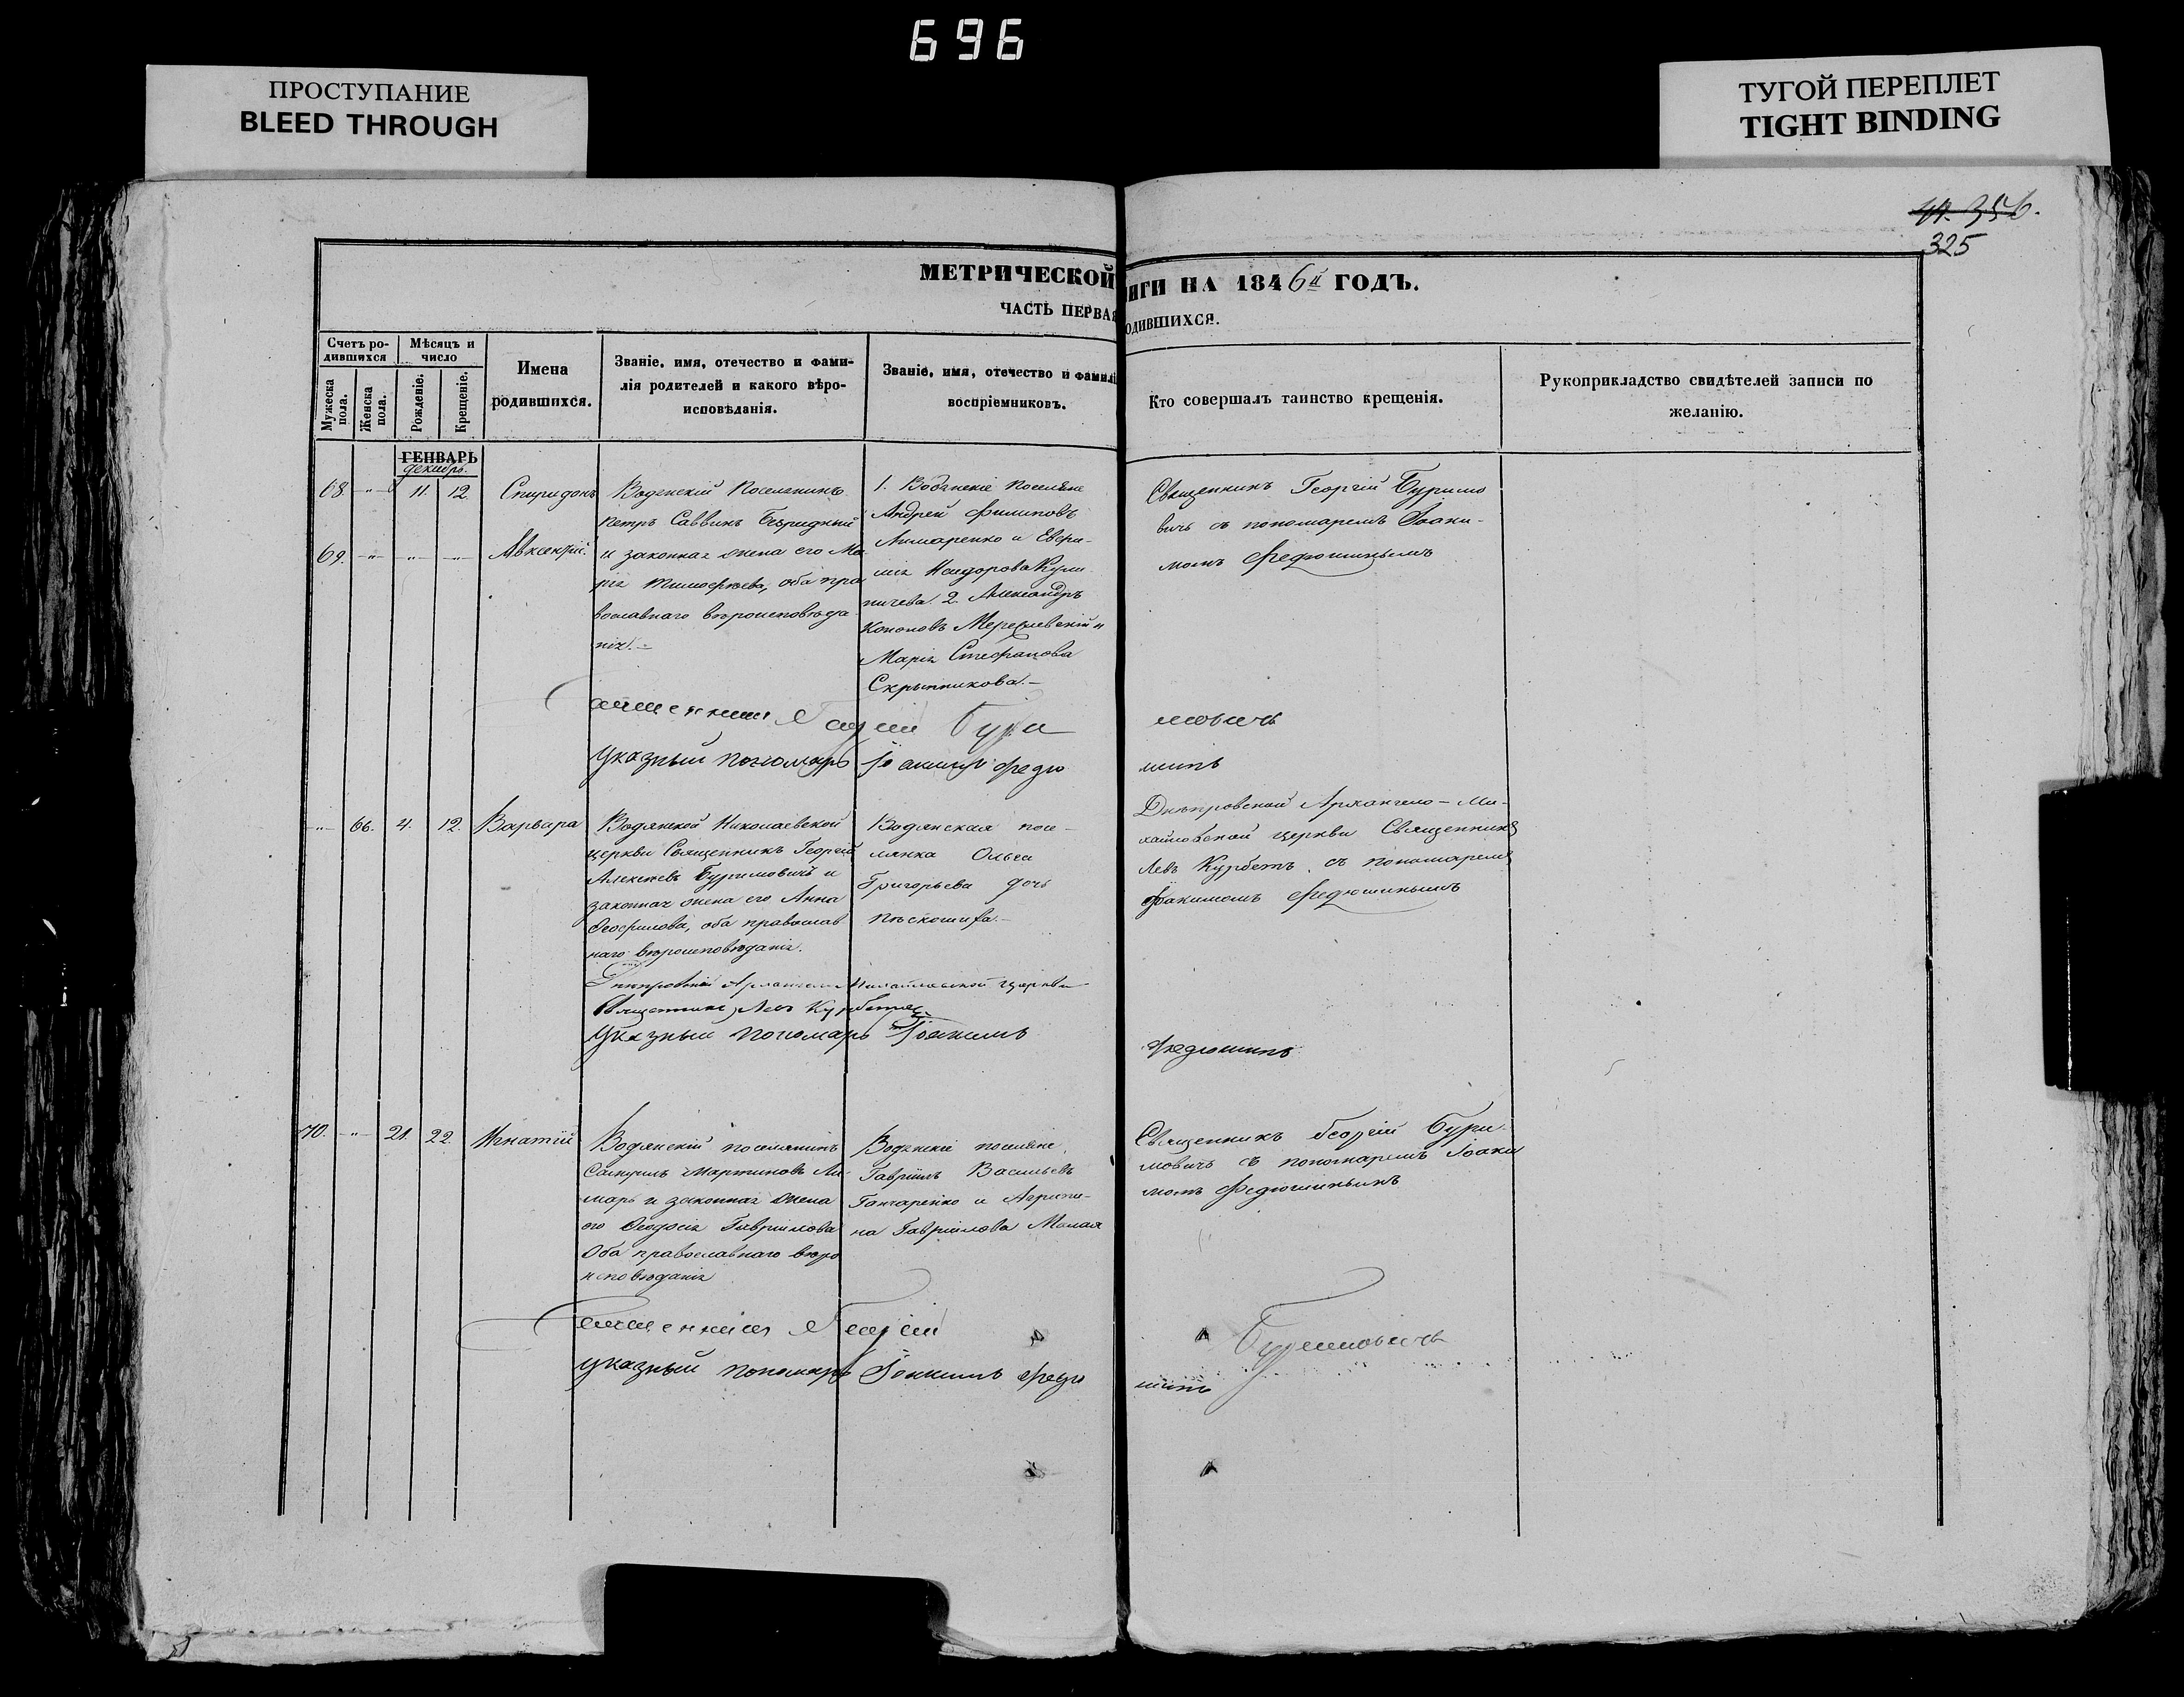 696
ПРОСТУПАНИЕ
BLEED THROUGH
ТУГОЙ ПЕРЕПЛЕТ
TIGHT BINDING
325
МЕТРИЧЕСКОЙ
ИГИ НА 1846й ГОДЪ.
ЧАСТЬ ПЕРВАЯ
ОДИВШИХСЯ.
Счетъ ро-
дившихся
Мужеска пола.
Женска пола.
Мѣсяцъ и
число
Рожденіе.
Крещеніе.
Имена
родившихся.
Званіе, имя, отечество и фами-
лія родителей и какого вѣро-
исповѣданія.
Званіе, имя, отечество и фамилі
воспріемниковъ.
Кто совершалъ таинство крещенія.
Рукоприкладство свидѣтелей записи по
желанію.
ГЕНВАРЬ
декабрь.
68. -"- 11. 12. Спиридонъ
69. -"- -"- -"- Авксентій.
Водянскій Поселянинъ
Петръ Саввинъ
и законная жена его Ма
рія Тимофѣева, оба пра
вославнаго вѣроисповѣда
нія.-
1. Водянскіе поселяне
Андрей Филиповъ
Лимаренко и Евфи-
мія Исидорова
2. Александръ
Кононовъ и
Марія Стефанова
Скрыпникова.-
Священникъ Георгій Буримо
вичь съ пономаремъ Іоаки-
момъ Федюшинымъ
Священникъ Георгій Бури
мовичь
Указный пономарь Іоакимъ Федю
шинъ
-"- 66. 4. 12. Варвара
Водянской Николаевской
церкви Священникъ Георгій
Алексѣевъ Буримовичь и
законная жена его Анна
Ѳеофилова, оба православ
наго вѣроисповѣданія.
Водянская посе-
лянка Ольга
Григорьева дочь
Днѣпровской Архангело-Ми-
хайловской церкви Священникъ
Левъ Курбетъ съ пономаремъ
Іоакимомъ Федюшинымъ
Днѣпровской Архангело Михайловской церкви
Священникъ Левъ Курбетъ
Указный пономарь Іоакимъ
Федюшинъ
70. -"- 21. 22. Игнатій
Водянскій поселянинъ
Самуилъ Мартиновъ Ли-
марь и законная жена
его Ѳеодосія Гавріилова
Оба православнаго вѣро
исповѣданія
Водянскіе поселяне
Гавріилъ Васильевъ
Гончаренко и Агрипи-
на Гавріилова Малая
Священникъ Георгій Бури-
мовичь съ пономаремъ Іоаки
момъ Федюшинымъ
Священникъ Георгій
Буримовичь
Указный пономарь Іоакимъ Федю
шинъ